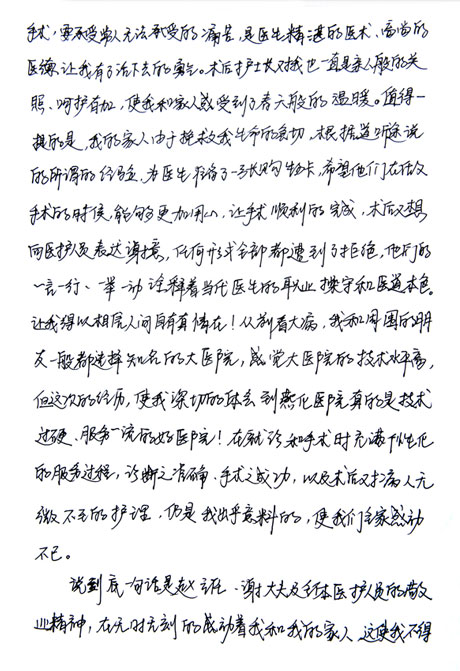 手术,要承受常人无法承受的痛苦,是医生精湛的医术、高尚的
医德让我有了活下去的勇气。术后护士长对我也一直是亲人般的关
照、呵护有加,使我和家人感受到了春天般的温暖。值得一
提的是,我的家人由于挽救我生命的急切,根据道听途说
的所谓的经验,为医生准备了一张购物卡,希望他们在给我
手术的时候,能够更加用心,让手术顺利的完成,术后又想
向医护人员表达谢意,任何形式全部都遭到了拒绝,他们的
一言一行、一举一动诠释着当代医生的职业操守和医道本色。
让我得以相信人间自有真情在!从前看大病,我和周围的朋
友一般都选择知名的大医院,感觉大医院的技术水平高,
但这次的经历,使我深切的体会到燕化医院真的是技术
过硬、服务一流的好医院!在就诊和手术时充满个性化
的服务过程,诊断之准确、手术之成功,以及术后对病人无
微不至的护理,仍是我出乎意料的,使我们全家感动
不已。
说到底一句话是赵主任、谢大夫及全体医护人员的敬
业精神,在无时无刻的感动着我和我的家人,这使我不得